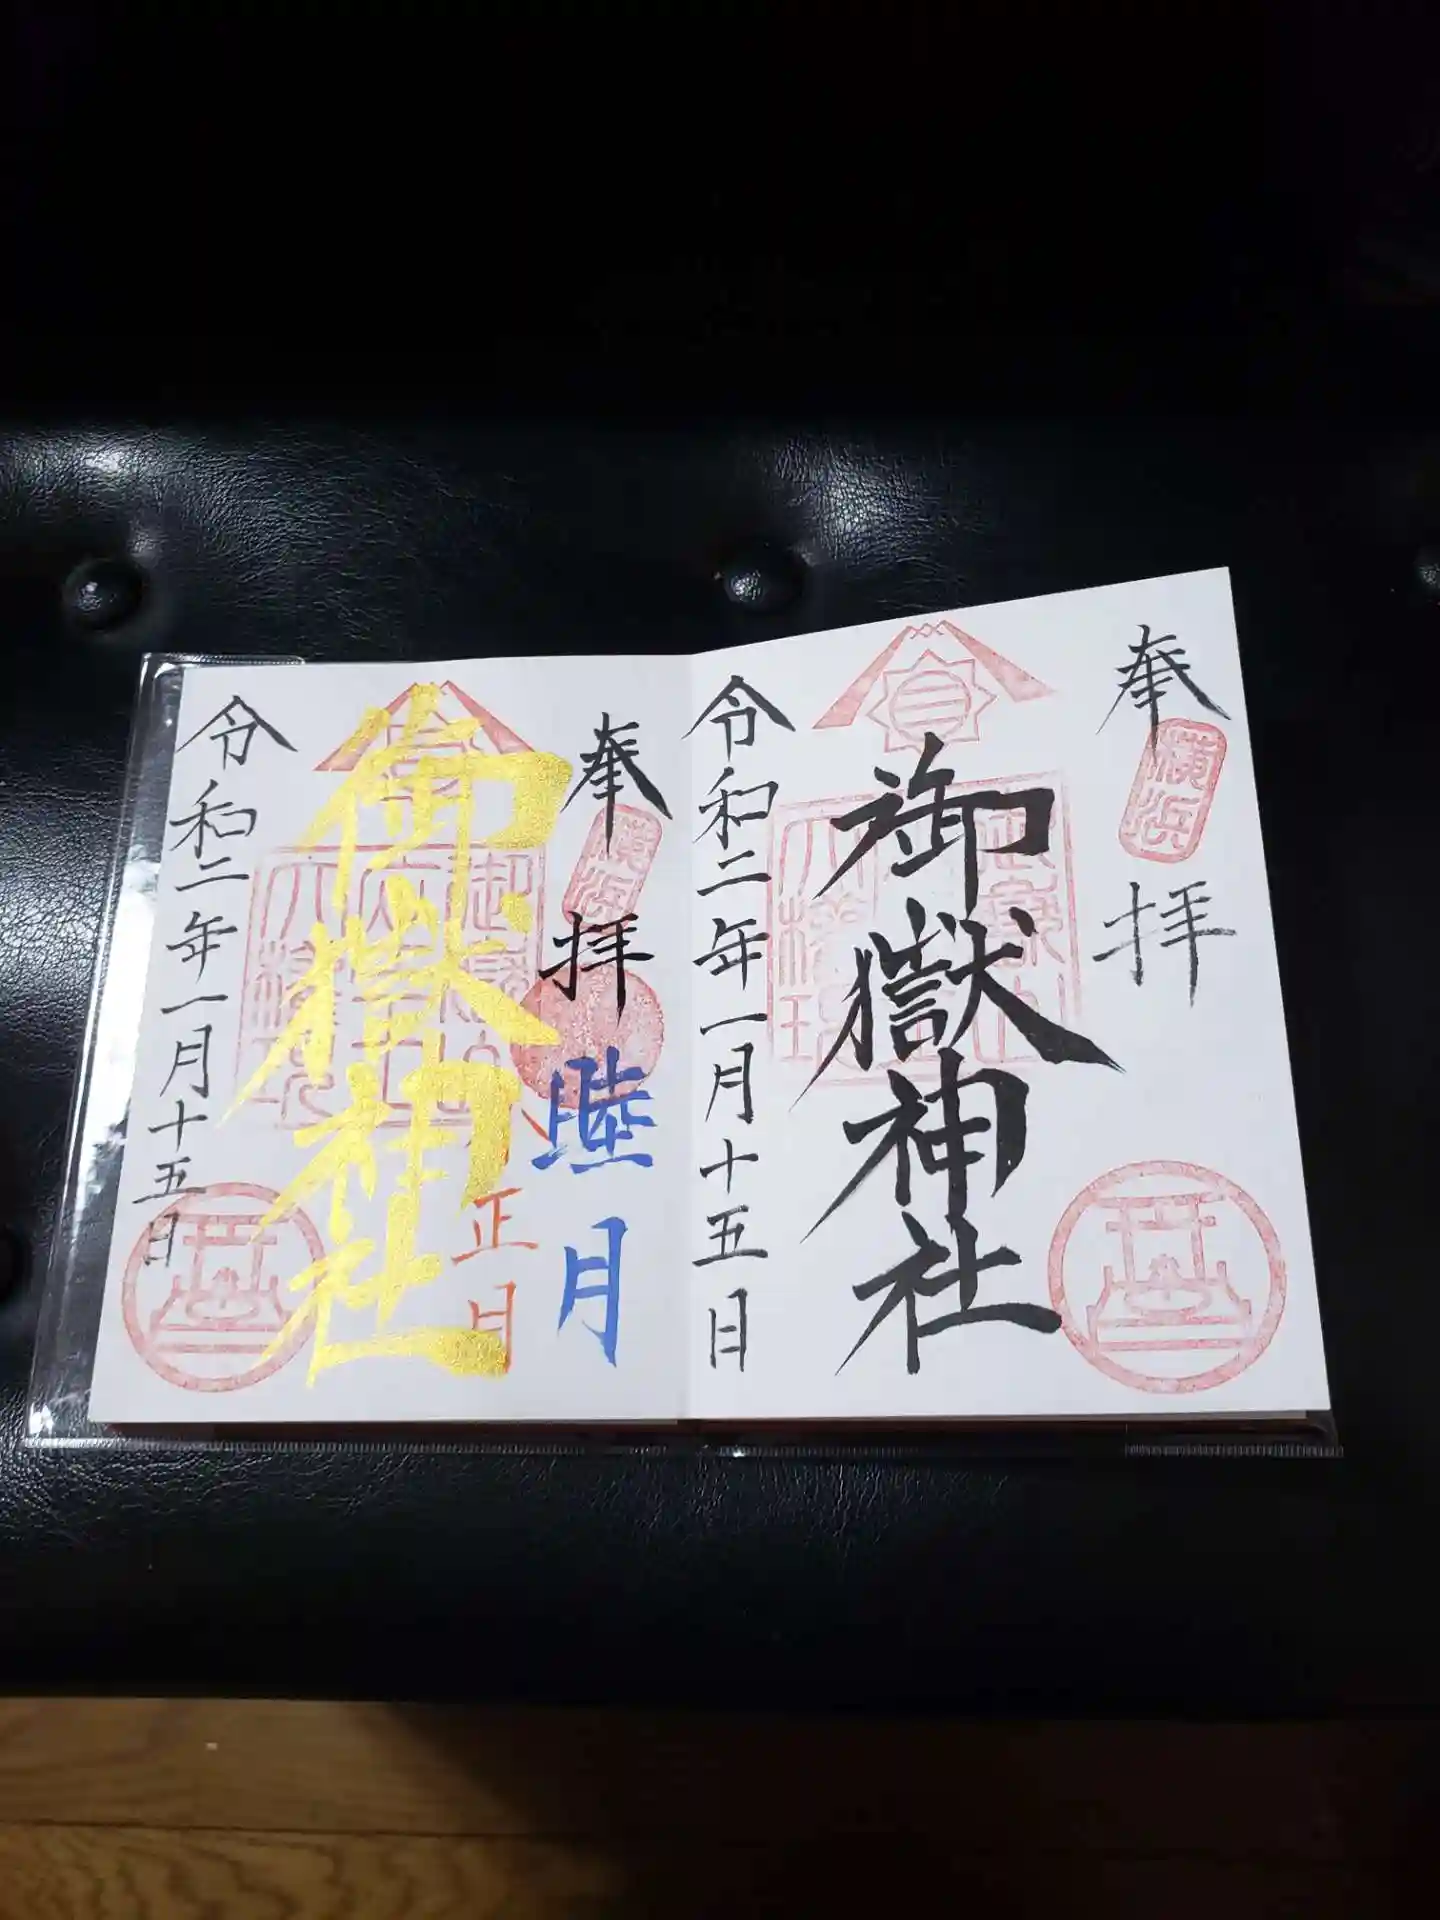 奉拝
横浜
御嶽神社
令和二年一月十五日
奉拝
横浜
睦月
正月
御嶽神社
令和二年一月十五日